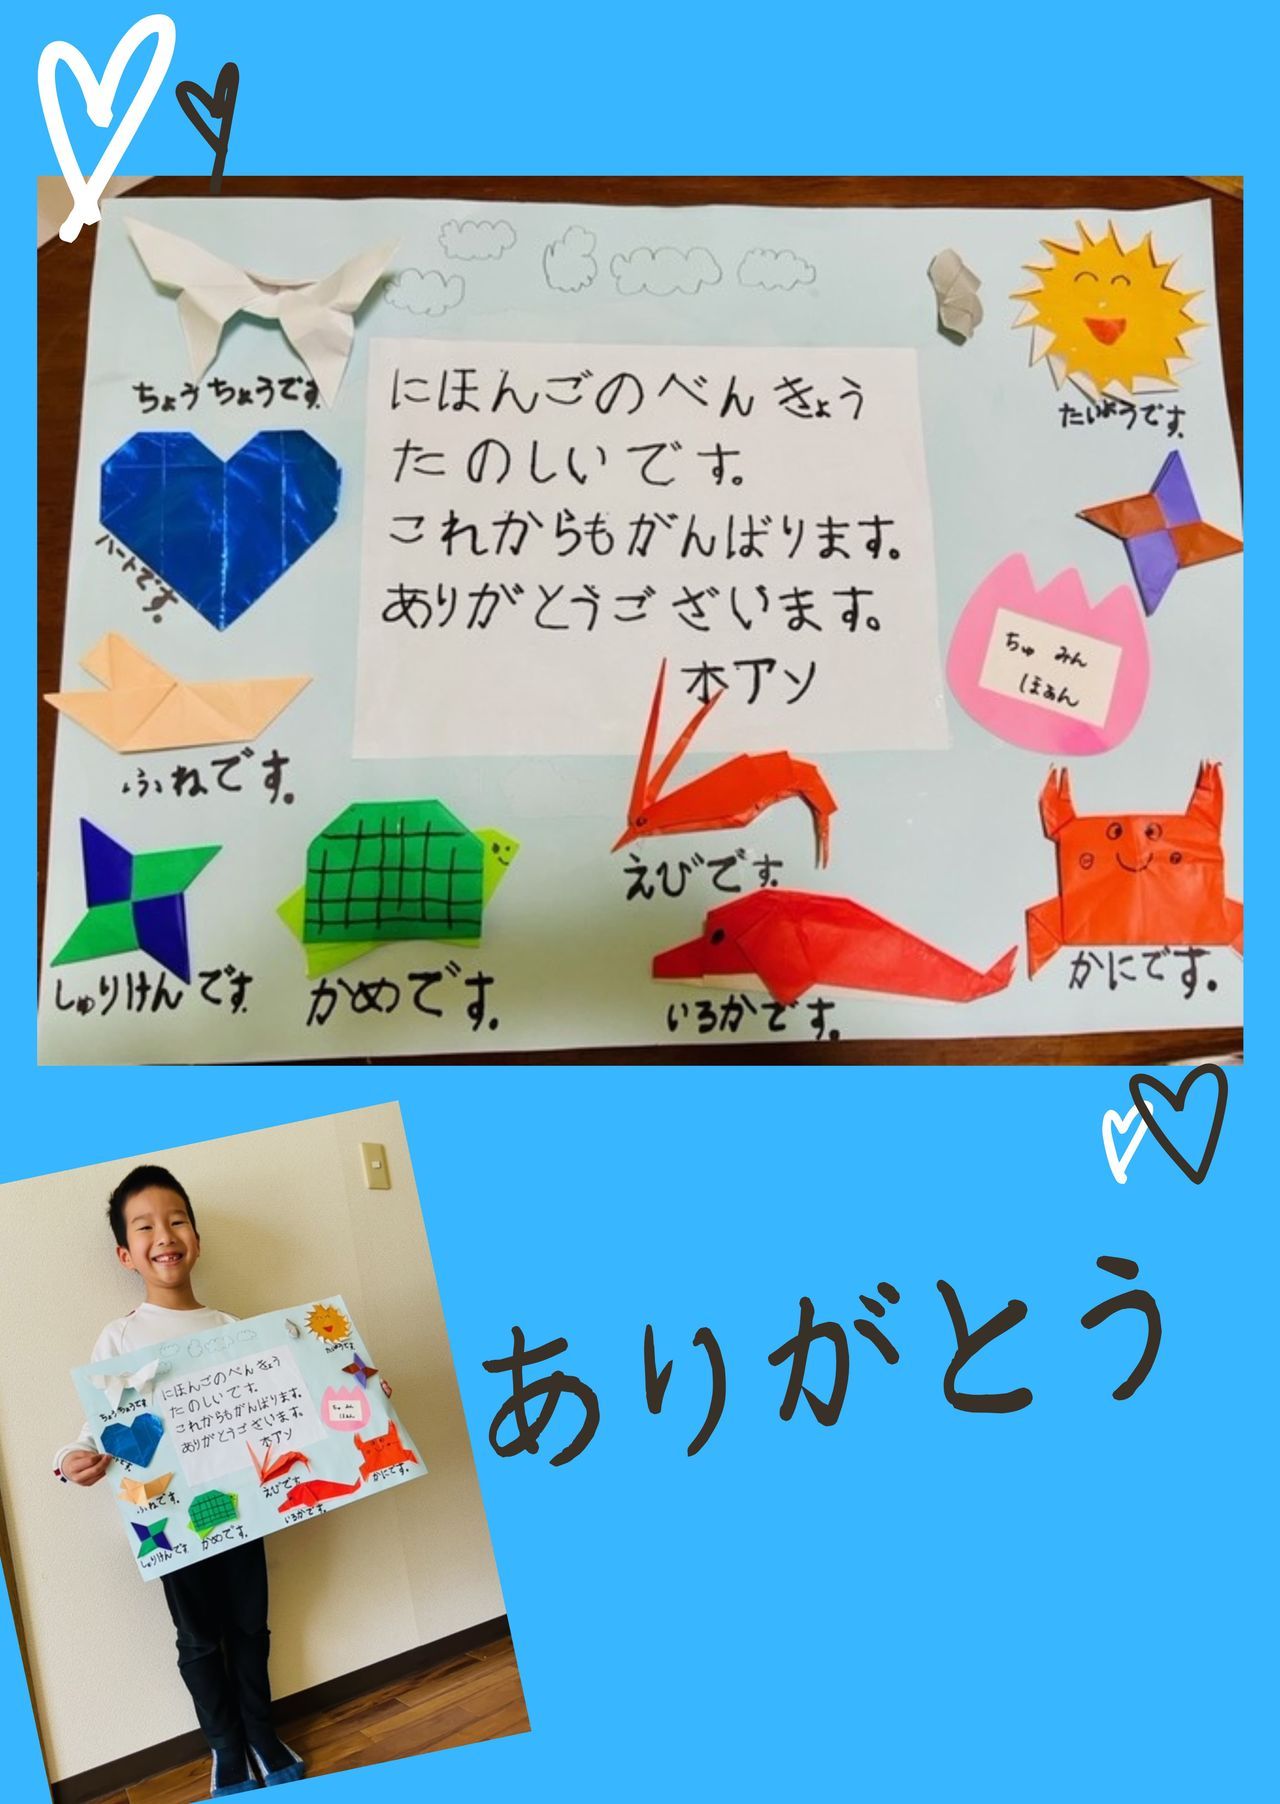 ちょうちょうです
にほんごのべんきょう
たのしいです。
これからもがんばります。
ありがとうございます。
ホアン
たいようです。
ハートです。
ちゅ みん
ほあん
ふねです。
えびです
しゅりけんです
かめです。
いるかです。
かにです。
にほんごのべんきょう
たのしいです。
これからもがんばります。
ありがとうございます。
ホアン
たいようです
ちょうちょうです
ちゅ みん
ほあん
ふねです。
えびです
かにです。
しゅりけんです
かめです。
いるかです。
ありがとう